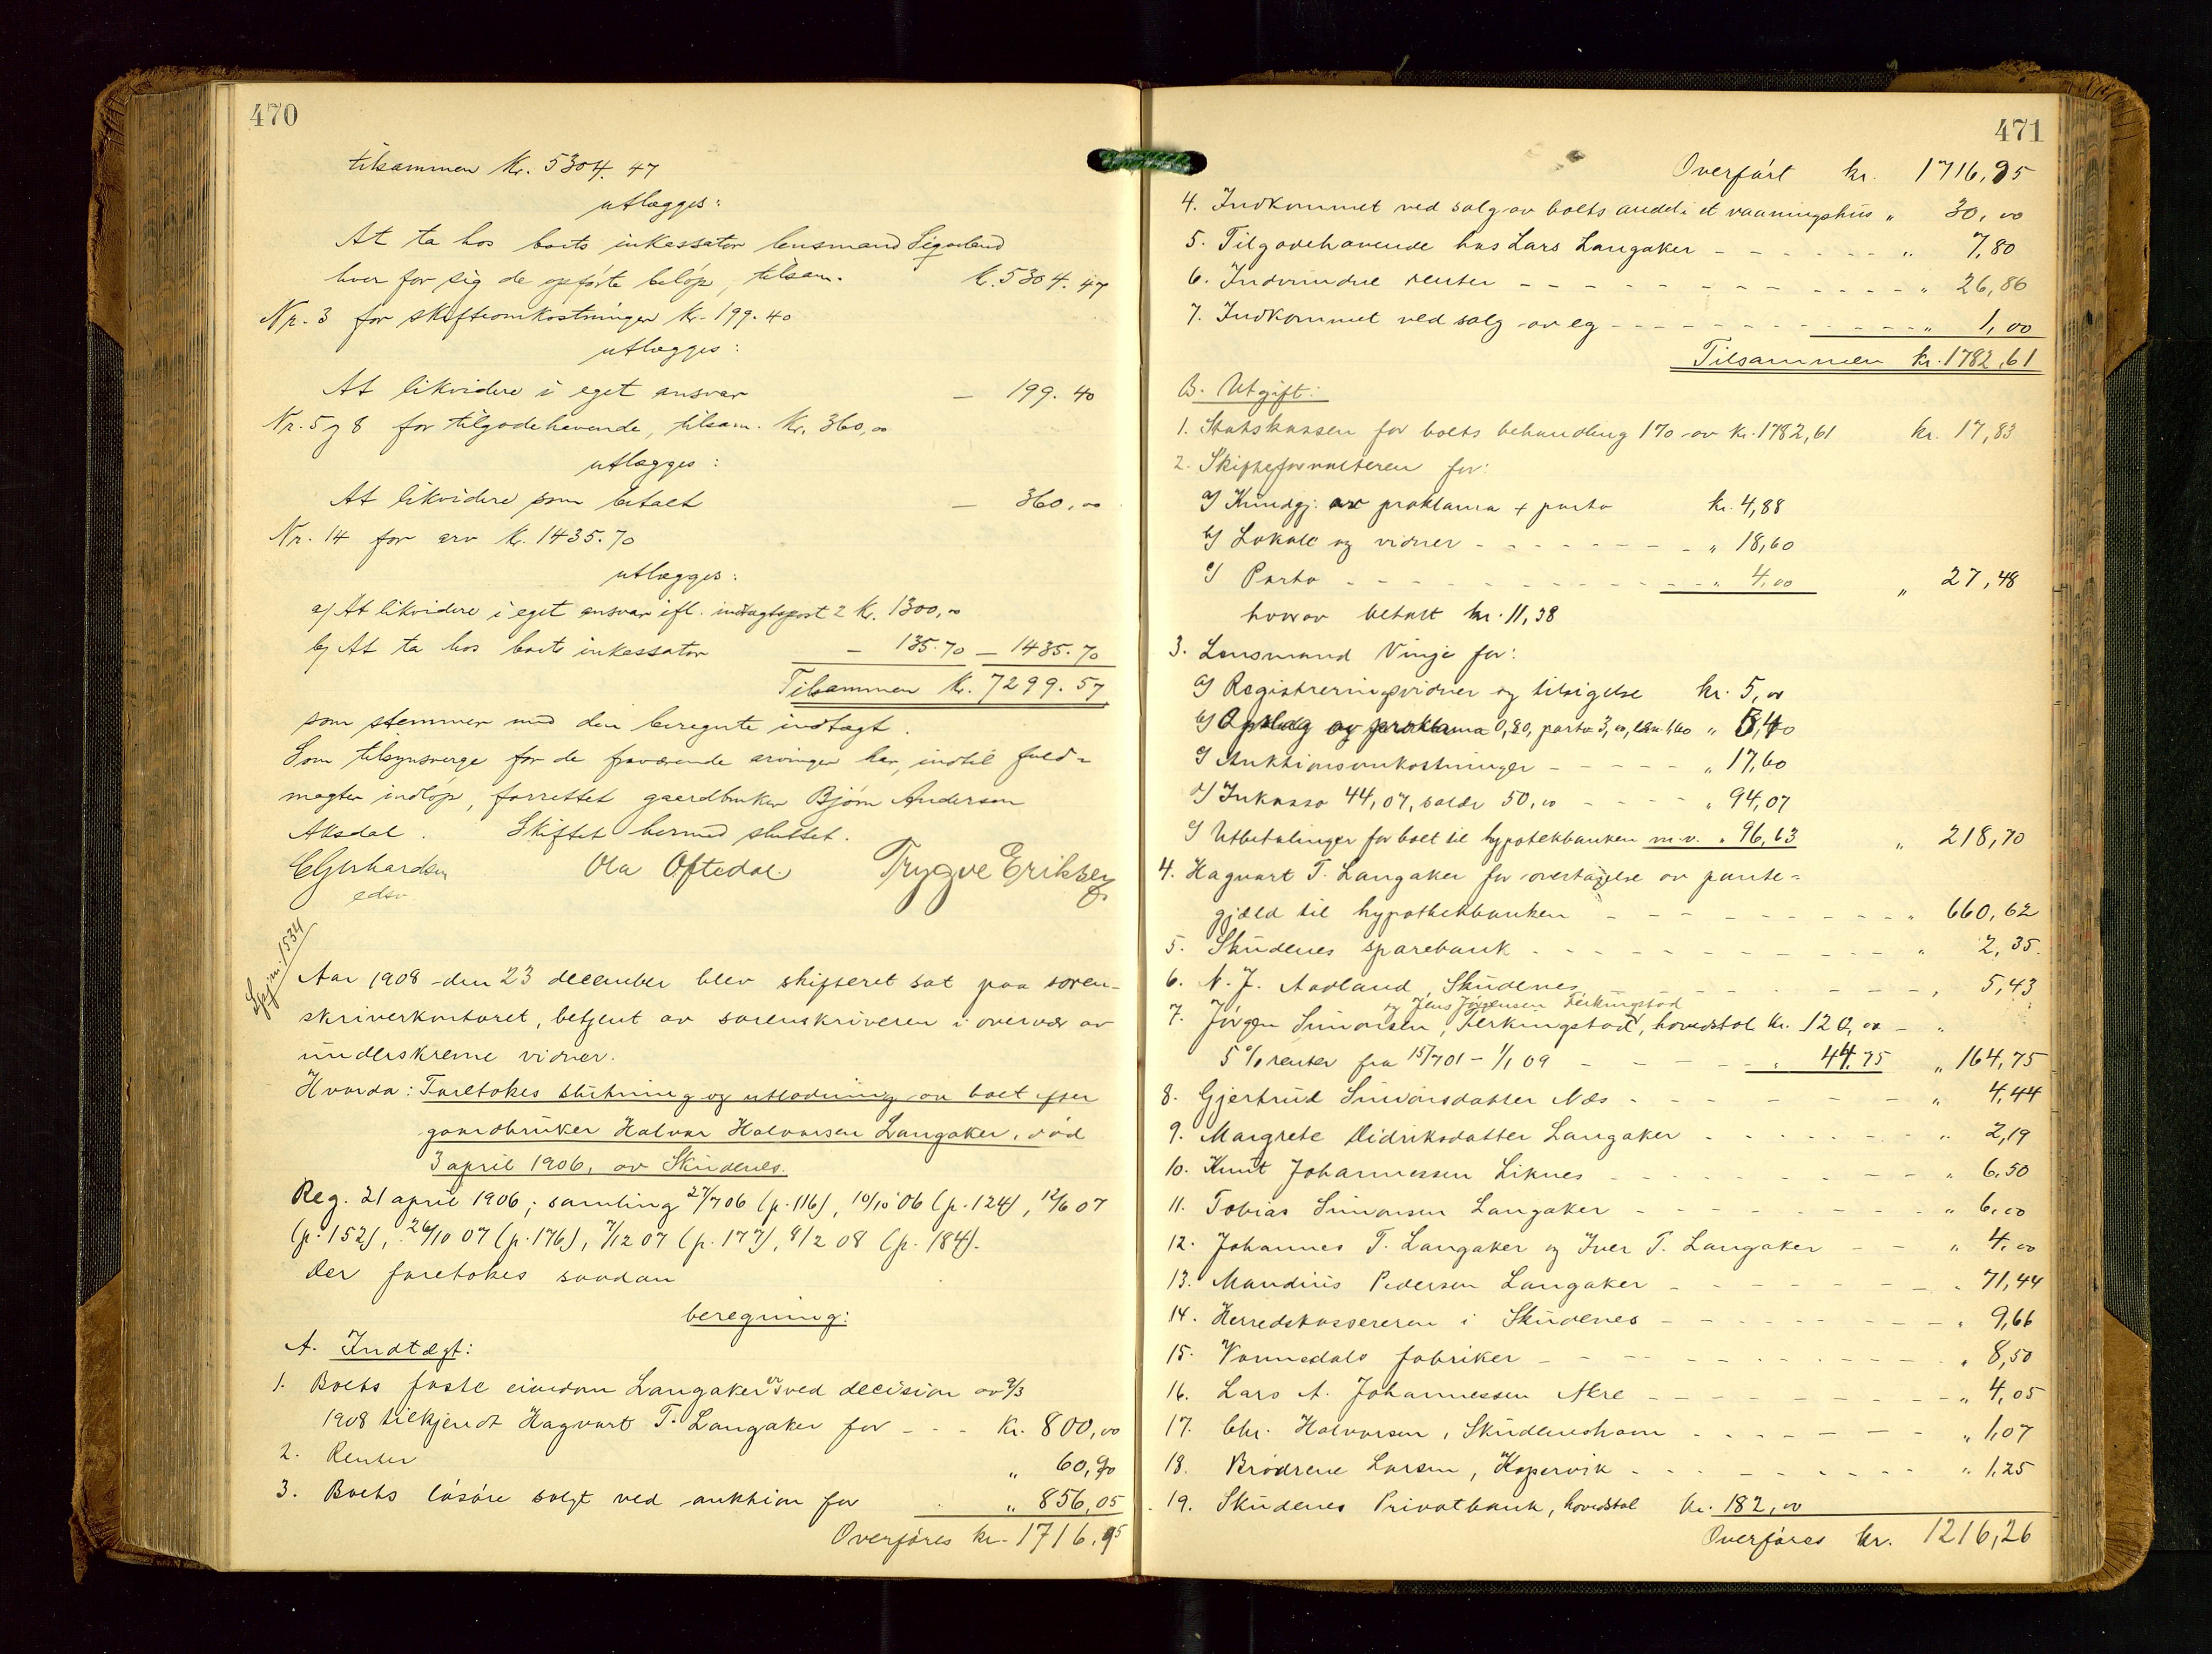 470
tilsammen Kr. 5304.47
utlægges:
At ta hos boets inkassator lensmand
hver for sig de opförte belöp, tilsam. k. 5304.47
Nr. 3 for skifteomkostninger Kr. 199.40
utlægges:
At likvidere i eget ansvar — 199.40
Nr. 5 og 8 for tilgodehavende, tilsam. Kr. 360,00
utlægges:
At likvidere som betalt — 360,00
Nr. 14 for arv Kr. 1435.70
utlægges:
a/ At likvidere i eget ansvar ifl. indtægtspost 2 Kr. 1300,00
b/ At ta hos boets inkassator — 135.70 — 1435.70
Tilsammen Kr. 7299.57
som stemmer med den beregnte indtægt.
Som tilsynsverge for de fraværende arvinger har, indtil fuld-
magter indlöp, forrettet gaardbruker Björn Andersen
Aksdal. Skiftet hermed sluttet.
CGerhardsen Ola Oftedal. Trygve Eriksen
edsv
1534
Aar 1908 den 23 december blev skifteret sat paa soren-
skriverkontoret, betjent av sorenskriveren i overvær av
underskrevne vidner.
Hvorda: Foretokes slutning og utlodning av boet efter
gaardbruker Halvor Halvorsen Langaker, död
3 april 1906, av Skudenes.
Reg. 21 april 1906; samling 27/7 06 (p. 116), 10/10 06 (p. 124), 12/6 07
(p. 152), 26/10 07 (p. 176), 7/12 07 (p. 177), 8/2 08 (p. 184).
Der foretokes saadan
beregning:
A. Indtægt:
1. Boets faste eiendom Langaker er ved decision av 9/3
1908 tilkjendt Hagvart T. Langaker for - - - Kr. 800,00
2. Renter " 60,90
3. Boets lösöre solgt ved auktion for " 856,05
Overföres kr. 1716,95
471
Overfört kr. 1716,95
4. Indkommet ved salg av boets andel i et vaaningshus " 30,00
5. Tilgodehavende hos Lars Langaker - - - - - - " 7,80
6. Indvundne renter - - - - - - - - - - " 26,86
7. Indkommet ved salg av eg - - - - - - - - " 1,00
Tilsammen kr. 1782,61
B. Utgift:
1. Statskassen for boets behandling 1% av kr. 1782,61 kr. 17,83
2. Skifteforvalteren for:
a/ Kundgj. av proklama + porto kr. 4,88
b/ Lokale og vidner - - - - - - " 18,60
c/ Porto - - - - - - - - - " 4,00 " 27,48
hvorav betalt kr. 11,38
3. Lensmand Vinje for:
a/ Registreringsvidner og tilsigelse kr. 5,00
b/ Opslag av proklama 0,80, porto 3,00, 1,60 " 5,40
c/ Auktionsomkostninger - - - - - " 17,60
d/ Inkasso 44,07, salær 50,00 - - - - " 94,07
e/ Utbetalinger for boet til hypotekbanken m.v. " 96,63 " 218,70
4. Hagvart T. Langaker for overtagelse av pante-
gjæld til hypothekbanken - - - - - - - - " 660,62
5. Skudenes sparebank - - - - - - - - - " 2,35.
6. N. J. Aadland, Skudenes - - - - - - - " 5,43
og Jens Jörgensen Ferkingstad
7. Jörgen Simonsen, Ferkingstad, hovedstol kr. 120,00 - "
5 % renter fra 15/7 01 - 1/1 09 - - - - " 44,75 " 164,75
8. Gjertrud Simonsdatter Næs - - - - - - " 4,44
9. Margrete Didriksdatter Langaker - - - - - - " 2,19
10. Knut Johannessen Liknes - - - - - - - " 6,50
11. Tobias Simonsen Langaker - - - - - - - " 6,00
12. Johannes T. Langaker og Iver T. Langaker - - " 4,00
13. Mandius Pedersen Langaker - - - - - - - " 71,44
14. Herredskassereren i Skudenes - - - - - - - " 9,66
15. Vormedals fabriker - - - - - - - - - " 8,50
16. Lars A. Johannessen Akre - - - - - - - " 4,05
17. Chr. Halvorsen, Skudeneshavn - - - - - - " 1,07
18. Brödrene Larsen, Kopervik - - - - - - - " 1,25
19. Skudenes Privatbank, hovedstol kr. 182,00
Overföres kr. 1216,26